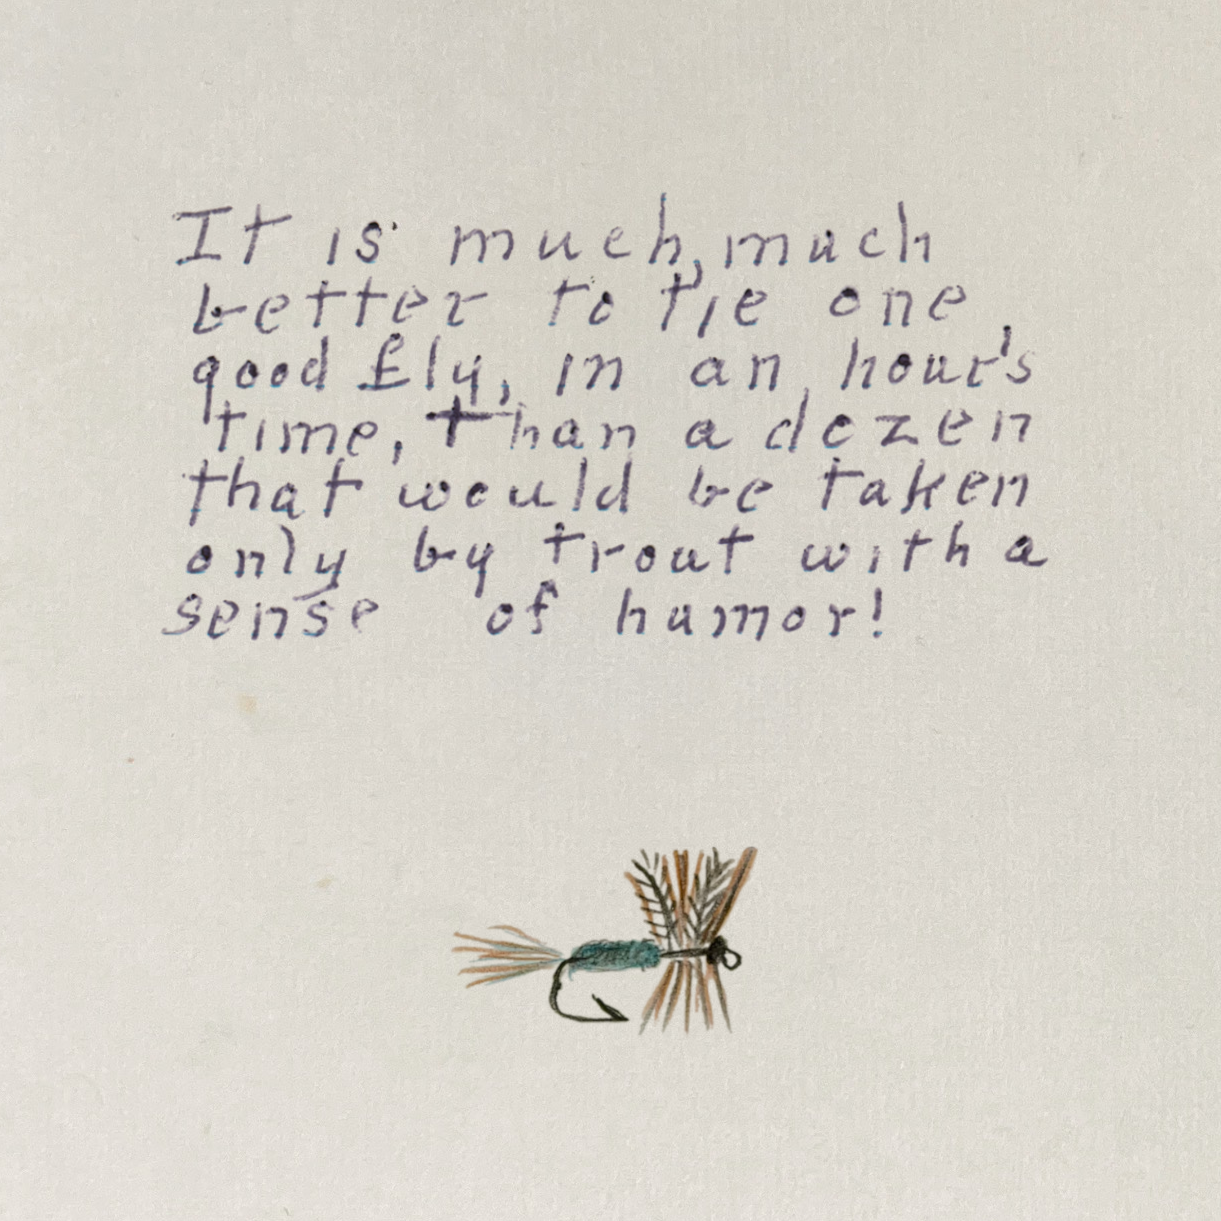 It is much, much
better to tie one
good fly, in an hour's
time, than a dozen
that would be taken
only by trout with a
sense of humor!